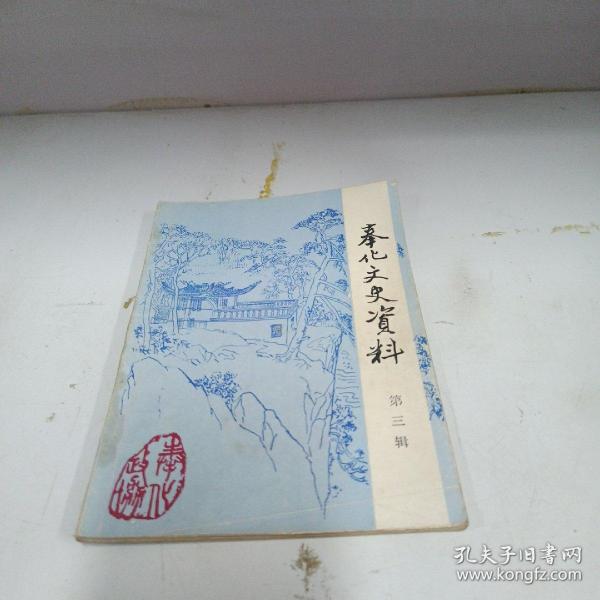 奉化文史资料
第三辑
奉化
政协
孔夫子旧书网
www.kongfz.com